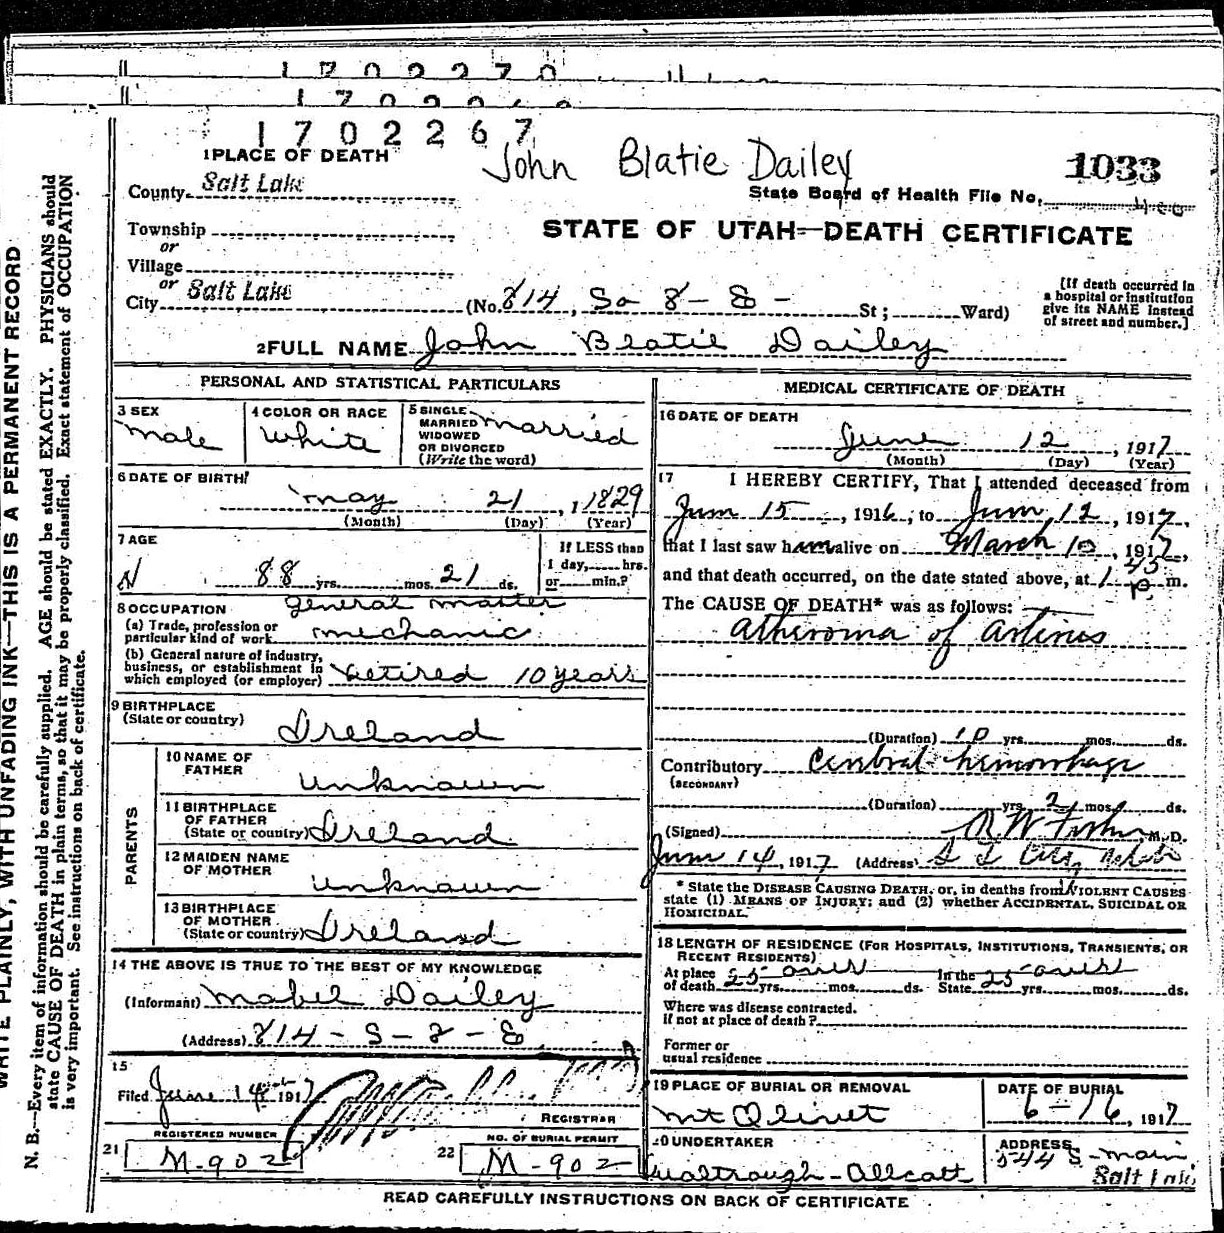 1702270
1702267
John Blatie Dailey
1033
1 PLACE OF DEATH
County Salt Lake
State Board of Health File No.
Township
or
STATE OF UTAH—DEATH CERTIFICATE
Village
or
City Salt Lake (No. 814, So 8 - E - St; Ward)
[If death occurred in a hospital or institution give its NAME instead of street and number.]
2 FULL NAME John Blatie Dailey
PERSONAL AND STATISTICAL PARTICULARS
3 SEX
male
4 COLOR OR RACE
White
5 SINGLE MARRIED WIDOWED OR DIVORCED (Write the word)
married
6 DATE OF BIRTH
may 21, 1829
(Month) (Day) (Year)
7 AGE
88 yrs. mos. 21 ds.
If LESS than 1 day, hrs. or min.?
8 OCCUPATION
(a) Trade, profession or particular kind of work
general master
mechanic
(b) General nature of industry, business, or establishment in which employed (or employer)
retired 10 years
9 BIRTHPLACE
(State or country)
Ireland
PARENTS
10 NAME OF FATHER
unknown
11 BIRTHPLACE OF FATHER
(State or country) Ireland
12 MAIDEN NAME OF MOTHER
unknown
13 BIRTHPLACE OF MOTHER
(State or country) Ireland
14 THE ABOVE IS TRUE TO THE BEST OF MY KNOWLEDGE
(Informant) Mabel Dailey
(Address) 814 - S - 8 - E
15
Filed June 14 1917
REGISTRAR
REGISTERED NUMBER
21 M-902
NO. OF BURIAL PERMIT
22 M-902
MEDICAL CERTIFICATE OF DEATH
16 DATE OF DEATH
June 12, 1917
(Month) (Day) (Year)
17 I HEREBY CERTIFY, That I attended deceased from
June 15, 1916, to June 12, 1917,
that I last saw him alive on March 10, 1917,
and that death occurred, on the date stated above, at 1 45 p. m.
The CAUSE OF DEATH* was as follows:
Atheroma of Arteries
(Duration) 10 yrs. mos. ds.
Contributory Cerebral hemorrhage
(SECONDARY)
(Duration) yrs. 2 mos. ds.
(Signed) R W Fisher M.D.
June 14, 1917 (Address) S L City, Utah
* State the DISEASE CAUSING DEATH, or, in deaths from VIOLENT CAUSES
state (1) MEANS OF INJURY; and (2) whether ACCIDENTAL, SUICIDAL OR
HOMICIDAL.
18 LENGTH OF RESIDENCE (FOR HOSPITALS, INSTITUTIONS, TRANSIENTS, OR
RECENT RESIDENTS)
At place of death 25 over yrs. mos. ds. In the State 25 over yrs. mos. ds.
Where was disease contracted.
If not at place of death?
Former or
usual residence
19 PLACE OF BURIAL OR REMOVAL
Mt Olivet
DATE OF BURIAL
6-16, 1917
20 UNDERTAKER
Watrough-Allcott
ADDRESS
544 S-main
Salt Lake
READ CAREFULLY INSTRUCTIONS ON BACK OF CERTIFICATE
WRITE PLAINLY, WITH UNFADING INK—THIS IS A PERMANENT RECORD
N. B.—Every item of information should be carefully supplied. AGE should be stated EXACTLY. PHYSICIANS should
state CAUSE OF DEATH in plain terms, so that it may be properly classified. Exact statement of OCCUPATION
is very important. See instructions on back of certificate.